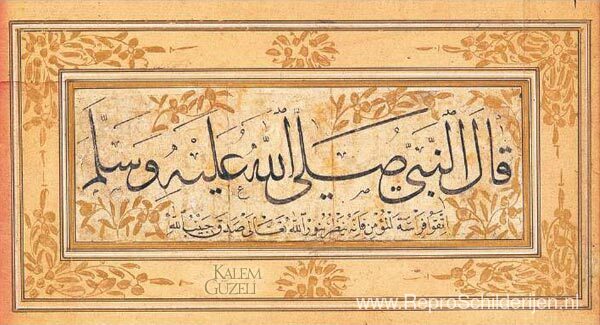 قال النبي صلى الله عليه وسلم
اتقوا فراسة المؤمن فإنه ينظر بنور الله تعالى صدق حبيب الله
KALEM
GÜZELİ
www.ReproSchilderijen.nl